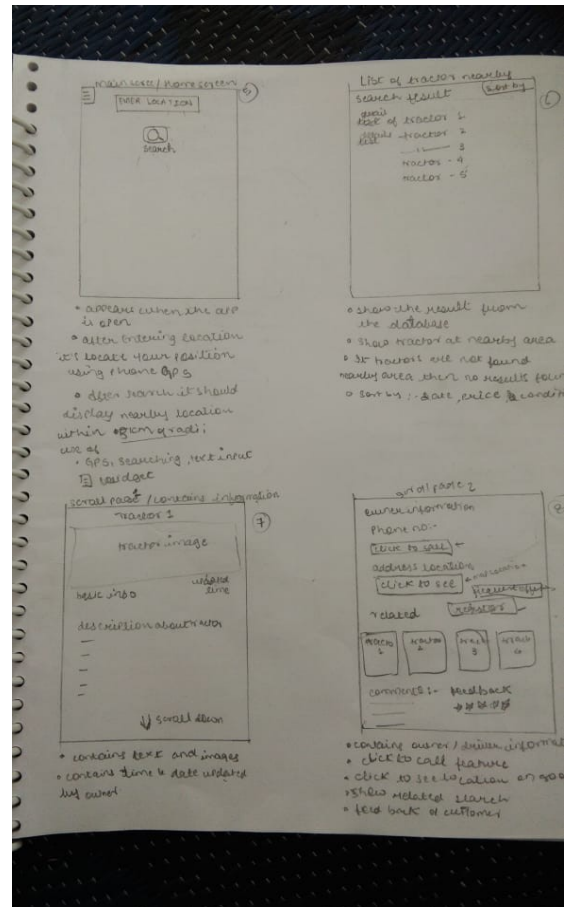 main user / Home screen
5
ENTER LOCATION
Search
• appears when the app
is open
• after entering location
it's locate your position
using phone GPS
• after search it should
display nearby location
within 5km of radi;
use of
• GPS, searching, text input
widget
List of tractor nearby
6
search result
sort by
detail
list of tractor 1
details
list tractor 2
3
tractor - 4
tractor - 5
• show the result from
the database
• show tractor at nearby area
• If tractors are not found
nearby area then no results foun
• sort by :- date, price & condit
scroll page 1 / contains information
7
Tractor 1
tractor image
updated
time
basic info
description about tractor
scroll down
• contains text and images
• contains time & date updated
by owner
page 2
8
owner information
Phone no:-
click to call
address location
click to see
related
register
tractor 1
tractor 2
tractor 3
tractor 4
comments :- feedback
• contains owner / driver informat
• click to call feature
• click to see location on goo
• show related search
• feed back of customer